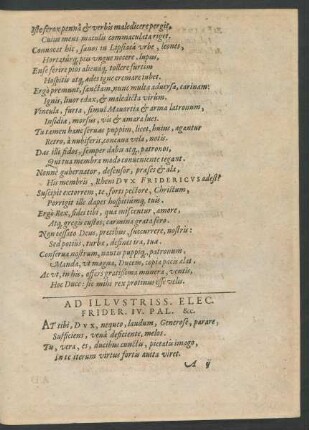 Isto ferox pennâ & verbis maledicere perget.
Cuius mens maculis commaculata riget.
Canuscat hic, sanus in Lipsiaca vrbe, leones,
Hos ungue nocere, lupus,
Ense ferire pios alendâq; tollere furtim
Hospitis atq; ædes igne cremare iubet.
Ergo premunt, sanctam, nunc multa aduersa, carinam:
Ignis, liuor edax, & maledicta virûm.
Vincula, furta, simul Mauortia & arma latronum,
Insidiæ, morsus, vis & amara lues.
Tu tamen hanc seruas puppim, licet, hinc, agantur
Retro, à nubiferis, concaua vela, notis.
Dac illi fidos, semper dabis atq;, patronos,
Qui tua membra modo conueniente tegant.
Nonne gubernator, defensor, præses & ala,
His membris, Rheni DVX FRIDERICVS adest?
Suscipit extorrem, te, forti pectore, Christum,
Porrigit ille dapes hospitiumq́, tuis.
Ergo Rex, fides tibi, qua miscentur, amore,
Atq, gregis custos, carmina grata fero.
Non cessato Deus, precibus, succurrere, nostris:
Sed potius, turbæ, desinet ira, tuæ.
Conserua nostrum, nautâ puppiq́, patronum,
Manda, vt magna, Ducem, copia pacis alat,
Ac vt, in his, offers gratissima munera, ventis,
Hoc Duce: sic nobis rex protinus esse velis.
AD ILLVSTRISS. ELEC.
FRIDER. IV. PAL. &c.
AT tibi, DVX, nequeo, laudum, Generose, parare,
Sufficiens, venâ deficiente, melos.
Tu, vera, es, ducibus cunctis, pietatis imago,
In te iterum virtus fortis auita viret.
A ij